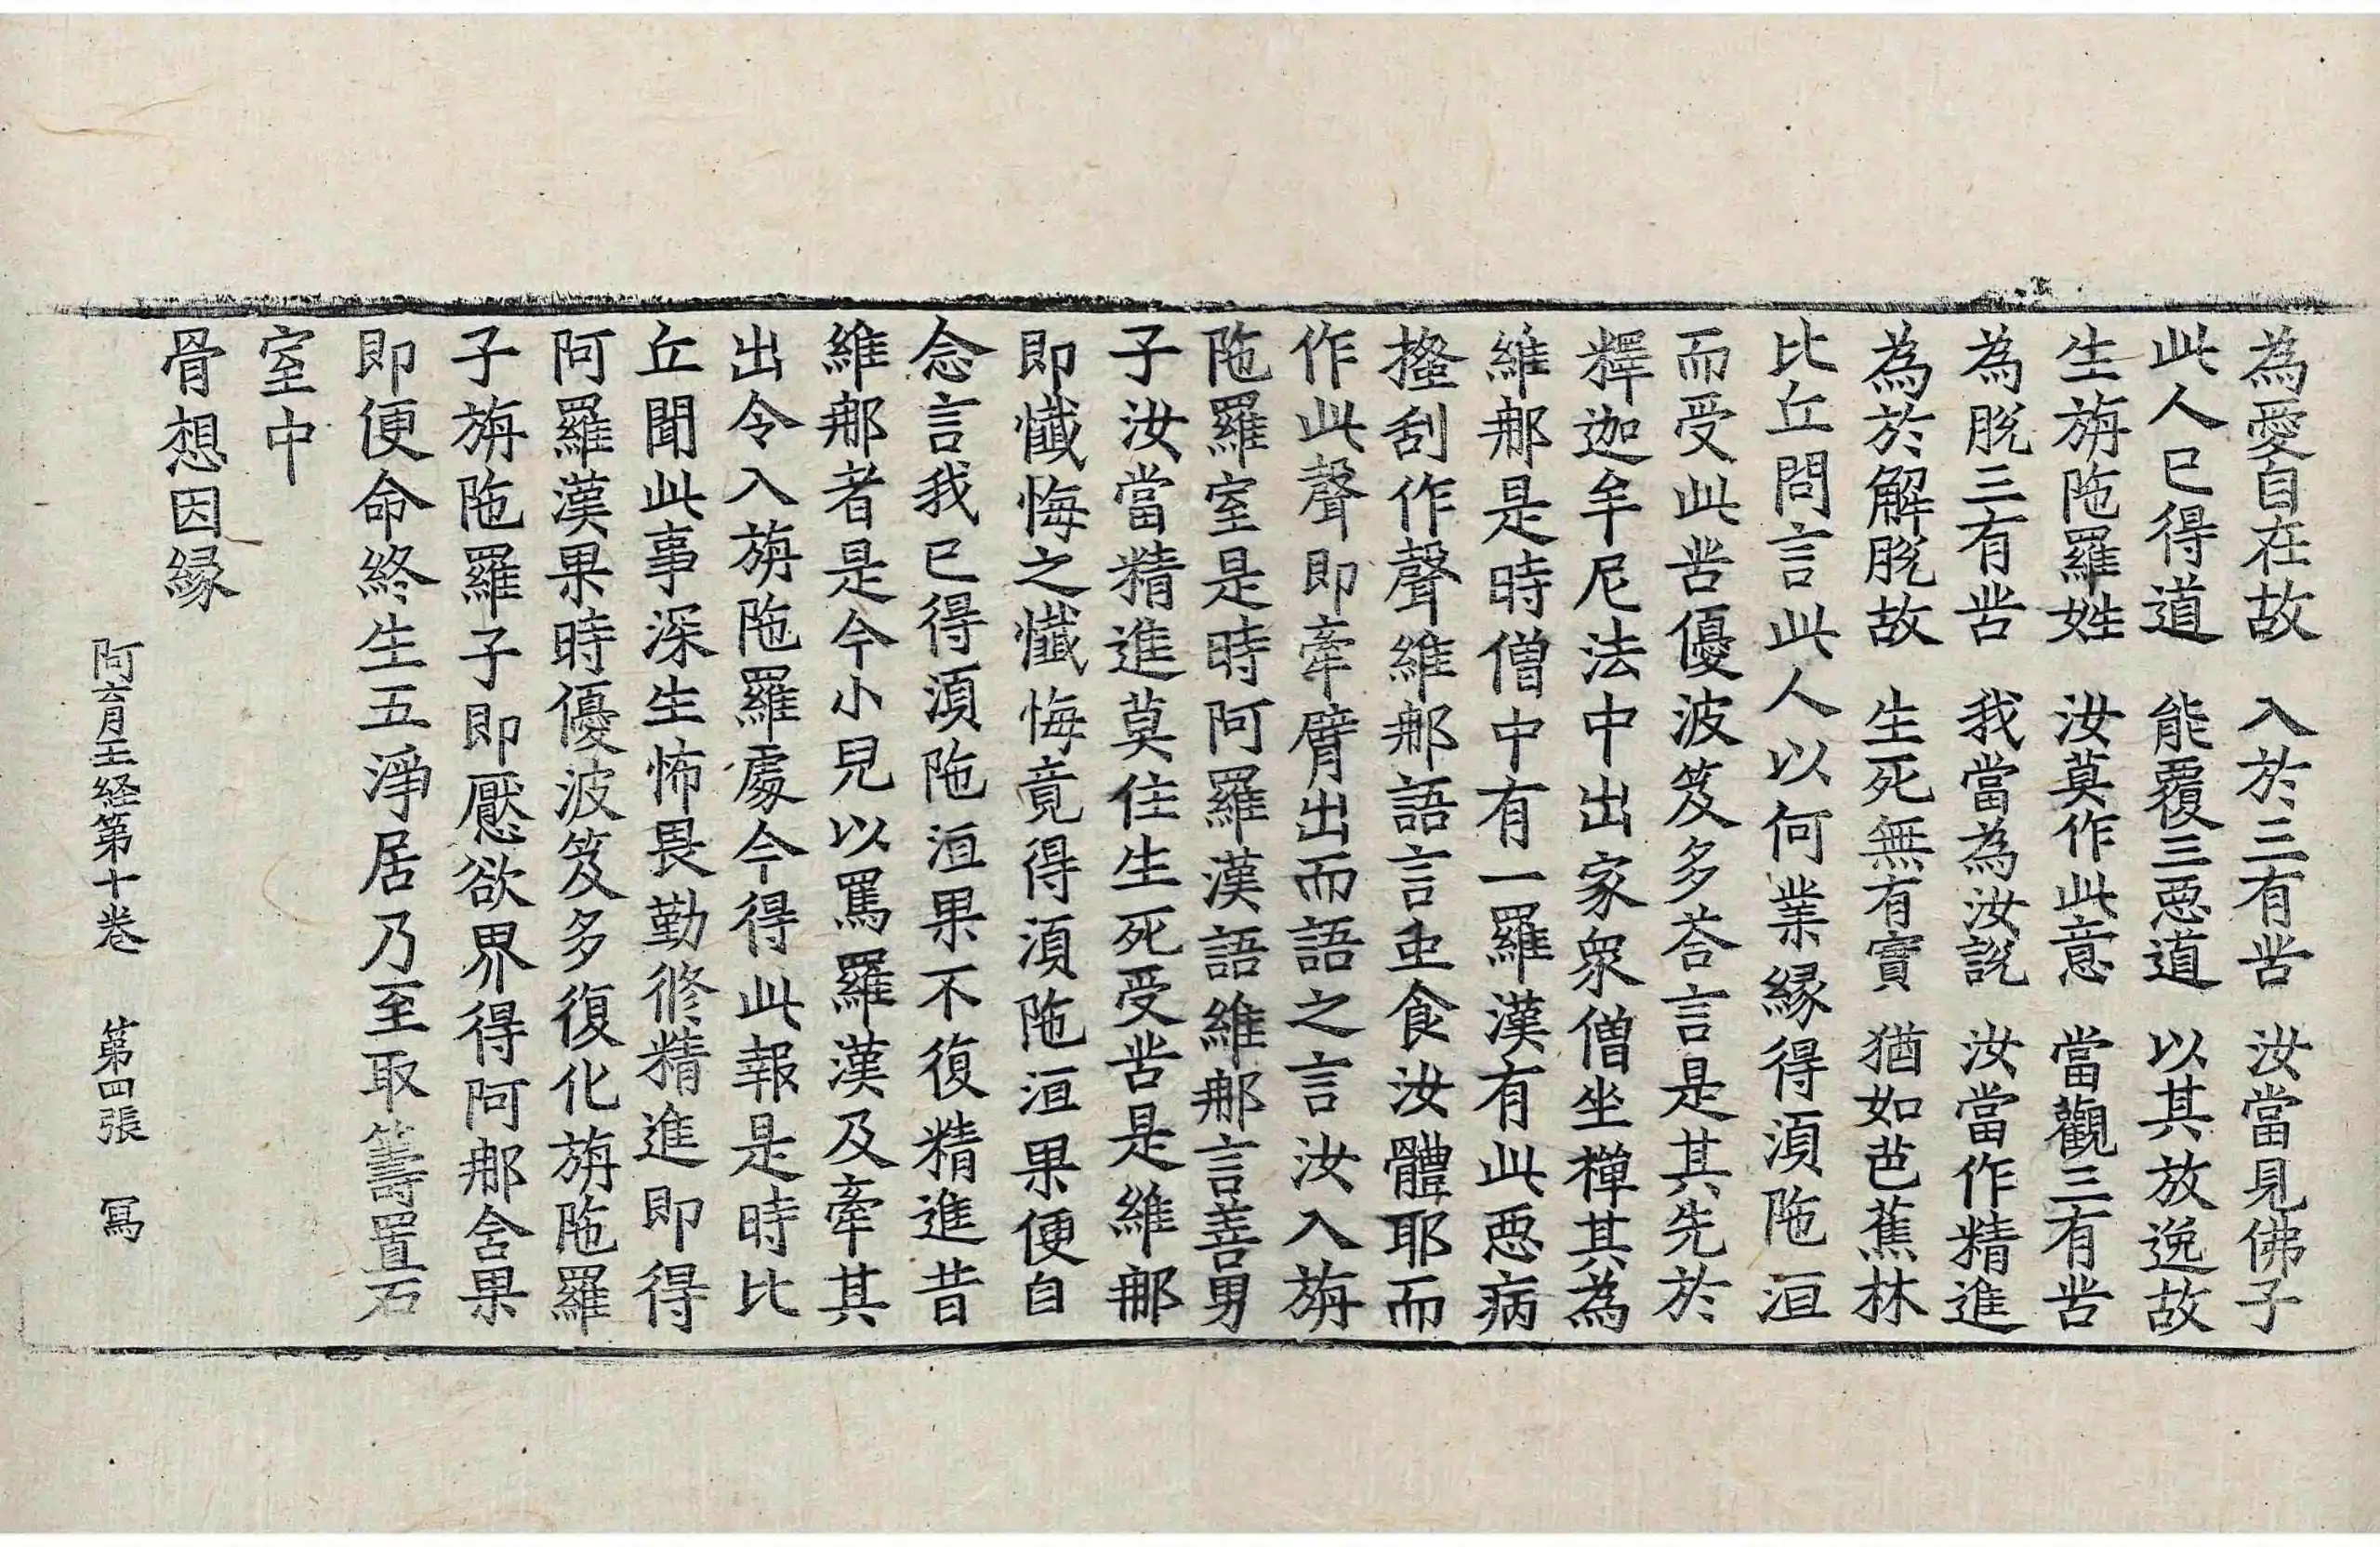 為愛自在故　入於三有苦　汝當見佛子
此人已得道　能覆三惡道　以其放逸故
生旃陁羅姓　汝莫作此意　當觀三有苦
為脫三有苦　我當為汝說　汝當作精進
為於解脫故　生死無有實　猶如芭蕉林
比丘問言此人以何業緣得湏陁洹
而受此苦優波笈多荅言是其先於
釋迦牟尼法中出家衆僧坐禪其為
維那是時僧中有一羅漢有此惡病
搔刮作聲維那語言虫食汝體耶而
作此聲即牽臂出而語之言汝入旃
陁羅室是時阿羅漢語維那言善男
子汝當精進莫住生死受苦是維那
即懺悔之懺悔竟得湏陁洹果便自
念言我已得湏陁洹果不復精進昔
維那者是今小兒以罵羅漢及牽其
出令入旃陁羅處今得此報是時比
丘聞此事深生怖畏勤修精進即得
阿羅漢果時優波笈多復化旃陁羅
子旃陁羅子即厭欲界得阿那含果
即便命終生五淨居乃至取籌置石
室中
骨想因緣
阿育王経第十卷　第四張　冩